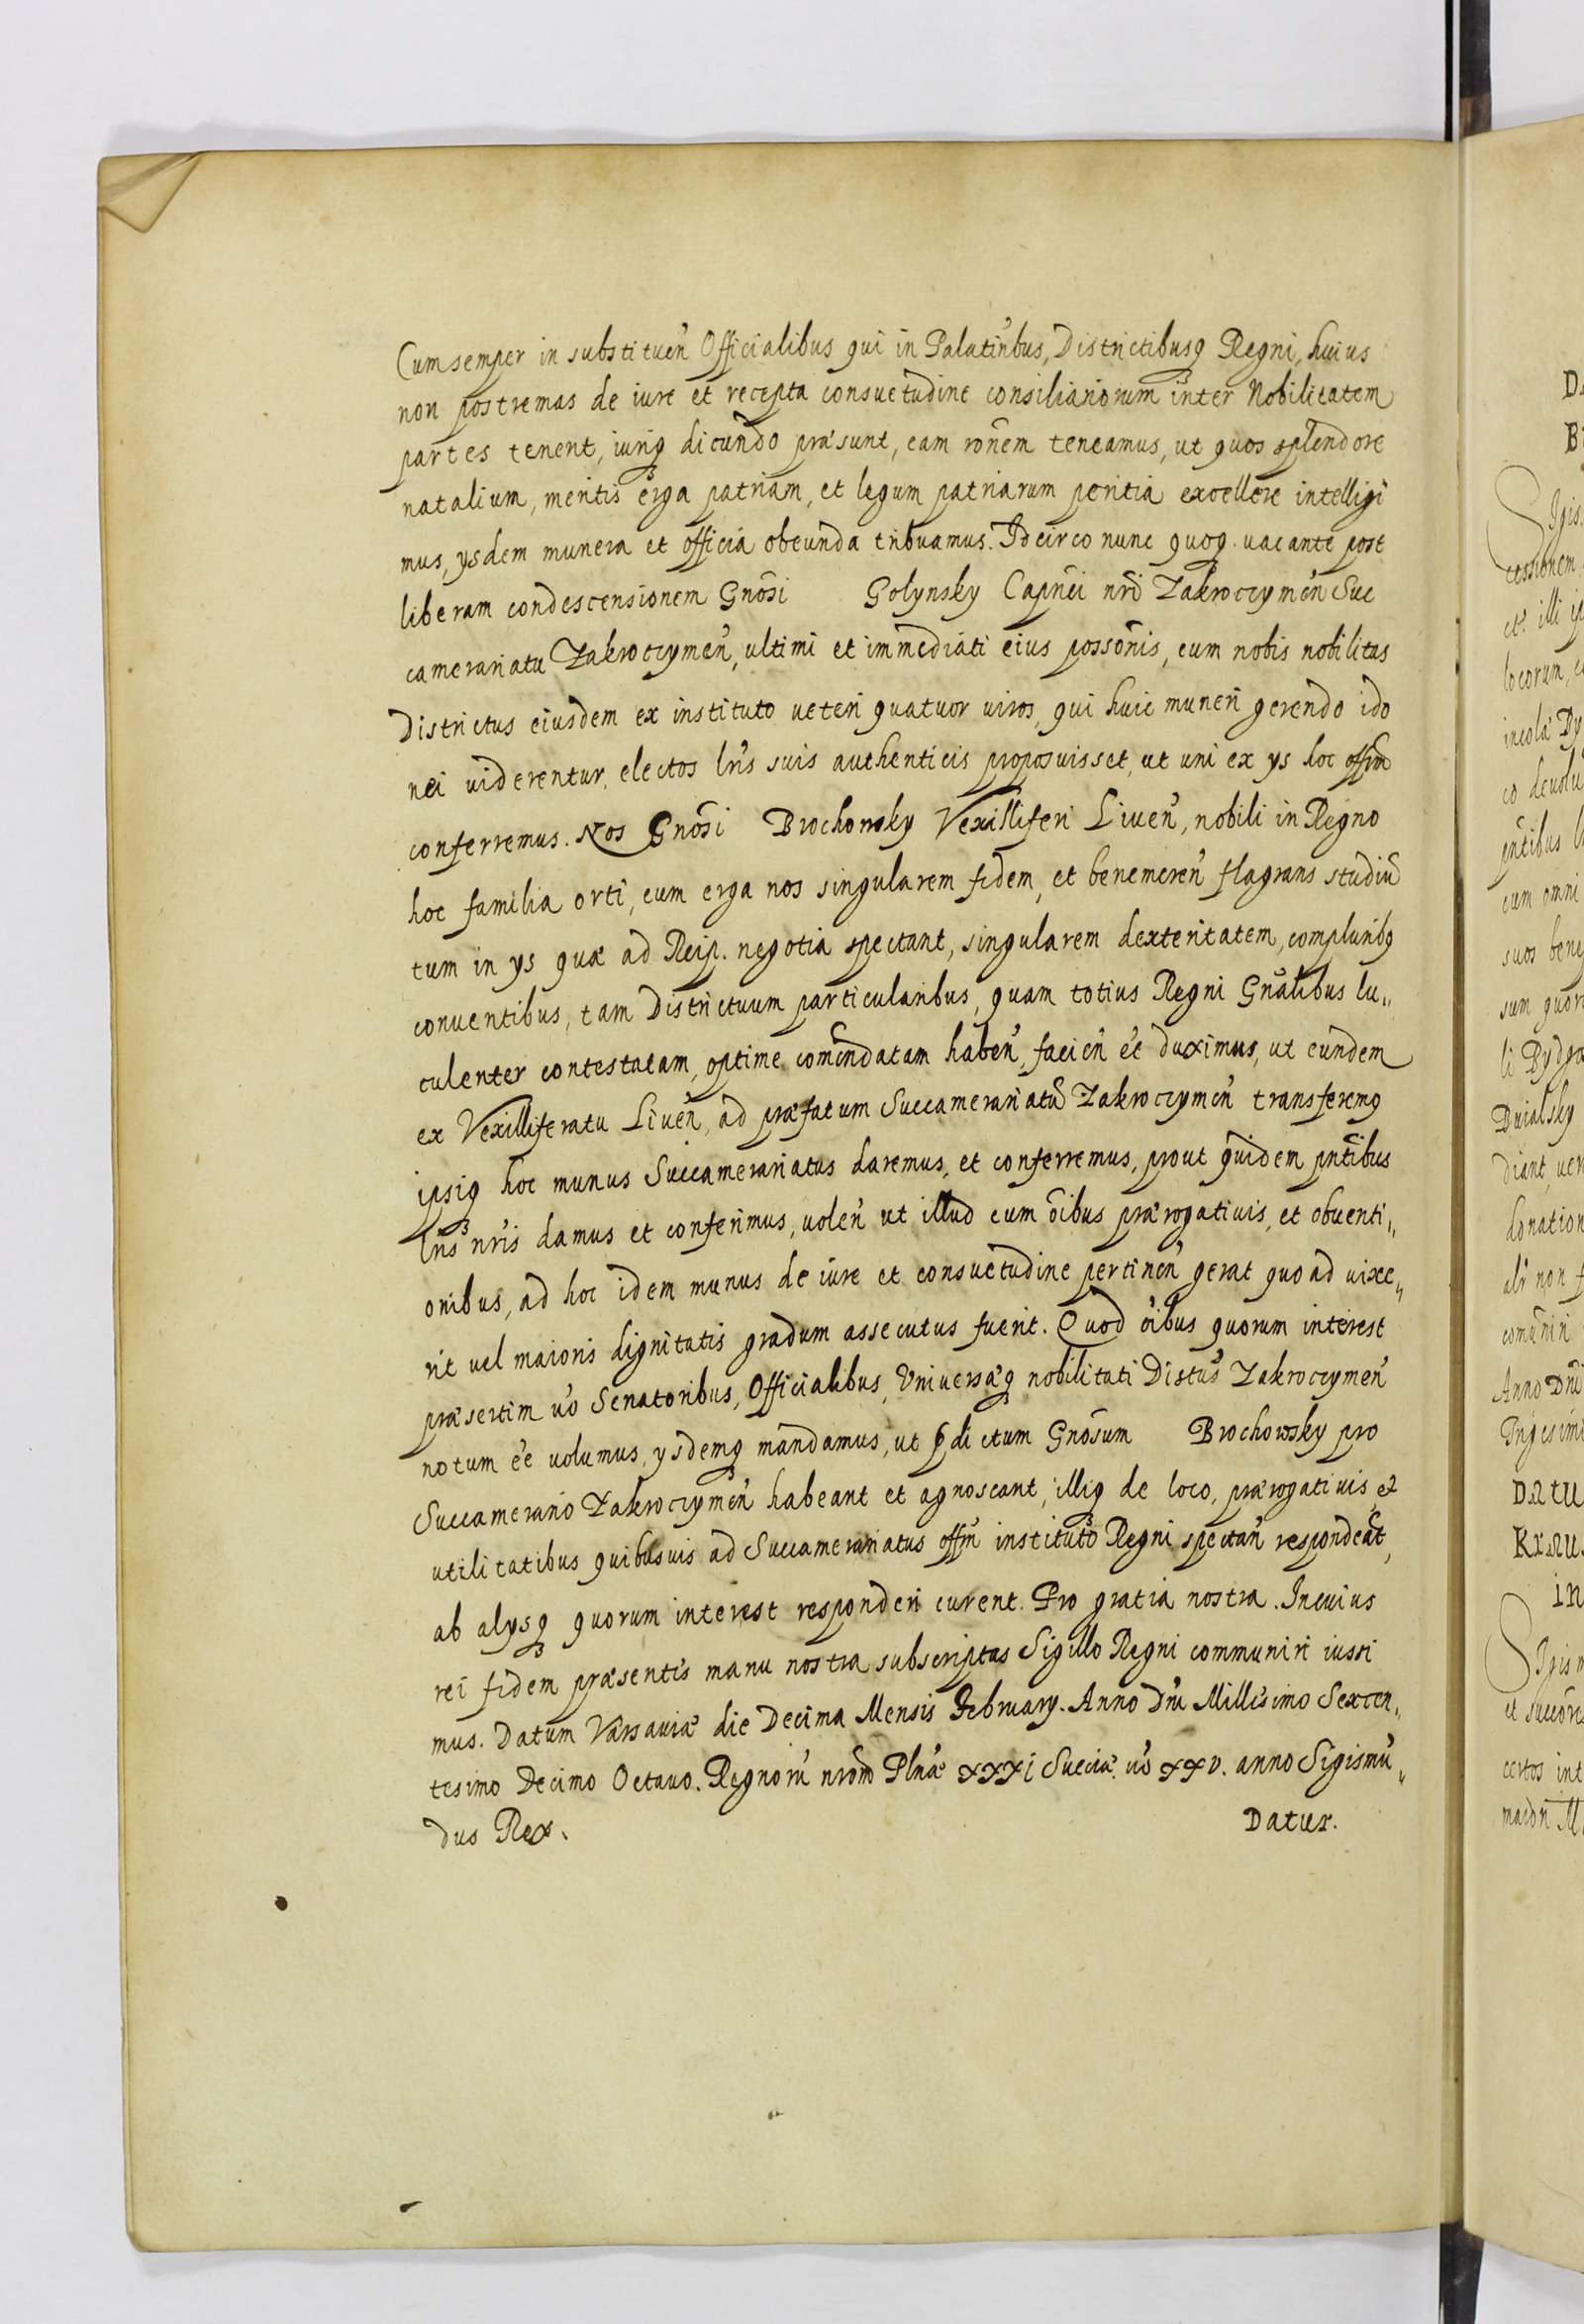 Cum semper in substituen̄ Officialibus qui in Palatin̄bus, Districtibusq Regni, huius
non postremas de iure et recepta consuetudine consiliariorum inter Nobilitatem
partes tenent, iuriq dicundo præsunt, eam rōnem teneamus, ut quos splendore
natalium, meritis erga patriam, et legum patriarum peritia excellere intelligi
mus, ysdem munera et officia obeunda tribuamus. Idcirco nunc quoq. uacante post
liberam condescensionem Gnōsi Golynsky Capn̄ei nrī Zakroczymen̄ Suc
camerariatu Zakroczymen̄, ultimi et immediati eius possōris, cum nobis nobilitas
Districtus eiusdem ex instituto ueteri quatuor uiros, qui huic muneri gerendo ido
nei uiderentur, electos lrīs suis authenticis proposuisset, ut uni ex ys hoc offm̄
conferremus. Nos Gnōsi Brochowsky Vexilliferi Liuen̄, nobili in Regno
hoc familia orti, cum erga nos singularem fidem, et benemeren̄ flagrans studiū
tum in ys quæ ad Reip. negotia spectant, singularem dexteritatem, compluribq
conuentibus, tam Districtuum particularibus, quam totius Regni Gnālibus lu„
culenter contestatam, optime comēndatam haben̄, facien̄ ēe duximus, ut eundem
ex Vexilliferatu Liuen̄, ad præfatum Succamerariatū Zakroczymen̄ transferemq
ipsiq hoc munus Succamerariatus daremus, et conferremus, prout quidem pn̄tibus
Lrīs nrīs damus et conferimus, uolen̄ ut illud cum ōibus prærogatiuis, et obuenti„
onibus, ad hoc idem munus de iure et consuetudine pertinen̄ gerat quo ad uixe„
rit uel maioris dignitatis gradum assecutus fuerit. Quod ōibus quorum interest
præsertim uō Senatoribus, Officialibus, Vniuersæq nobilitati Distūs Zakroczymen̄
notum ēe uolumus, ysdemq mandamus, ut p̄dictum Gnōsum Brochowsky pro
Succamerario Zakroczymen̄ habeant et agnoscant, illiq de loco, prærogatiuis et
utilitatibus quibusuis ad Succamerariatus offm̄ instituto Regni spectan̄ respondeāt,
ab alysq quorum interest responderi curent. Pro gratia nostra. In cuius
rei fidem præsentis manu nostra subscriptas Sigillo Regni communiri iussi
mus. Datum Varsauiæ die Decima Mensis February. Anno Dnī Millesimo Sexcen„
tesimo Decimo Octauo. Regnorū nrōrū Plnæ XXXi Sueciæ uō XXV. anno Sigismū„
dus Rex. Datur.